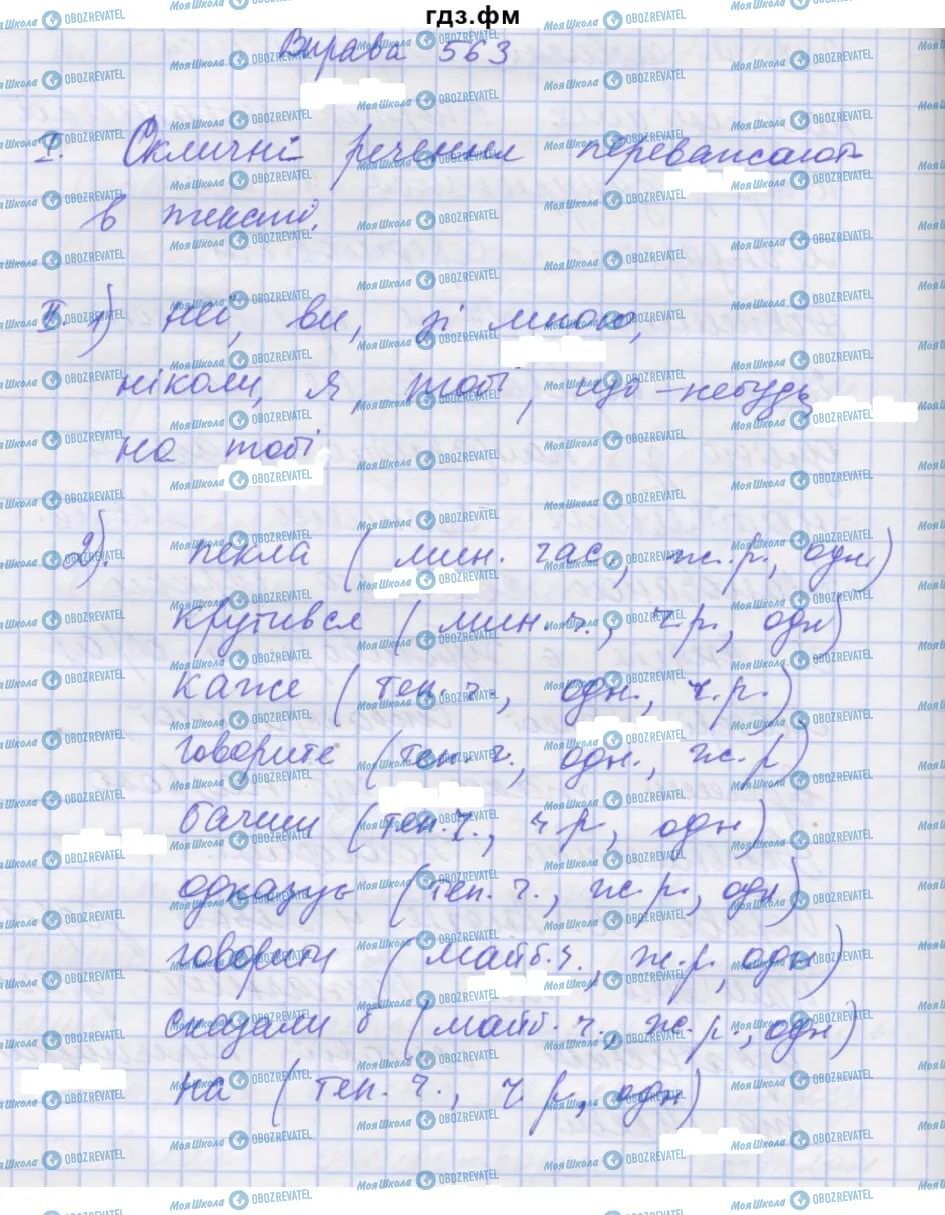 гдз.фм
Вправа 563
I. Окличні речення переважають
в тексті.
II. 1) неї, ви, зі мною,
ніколи, я, тобі, що-небудь
на тобі
2). пекла (мин. час., ж.р., одн)
крутився (мин. ч., ч.р., одн)
каже (теп. ч., одн., ч.р.)
говорите (теп. ч., одн., ж.р)
бачиш (теп. ч., ч р, одн)
одказує (теп. ч., ж.р., одн)
говорити (майб. ч., ж.р, одн)
сказали б (майб. ч., ж.р., одн)
на (теп. ч., ч.р, одн)